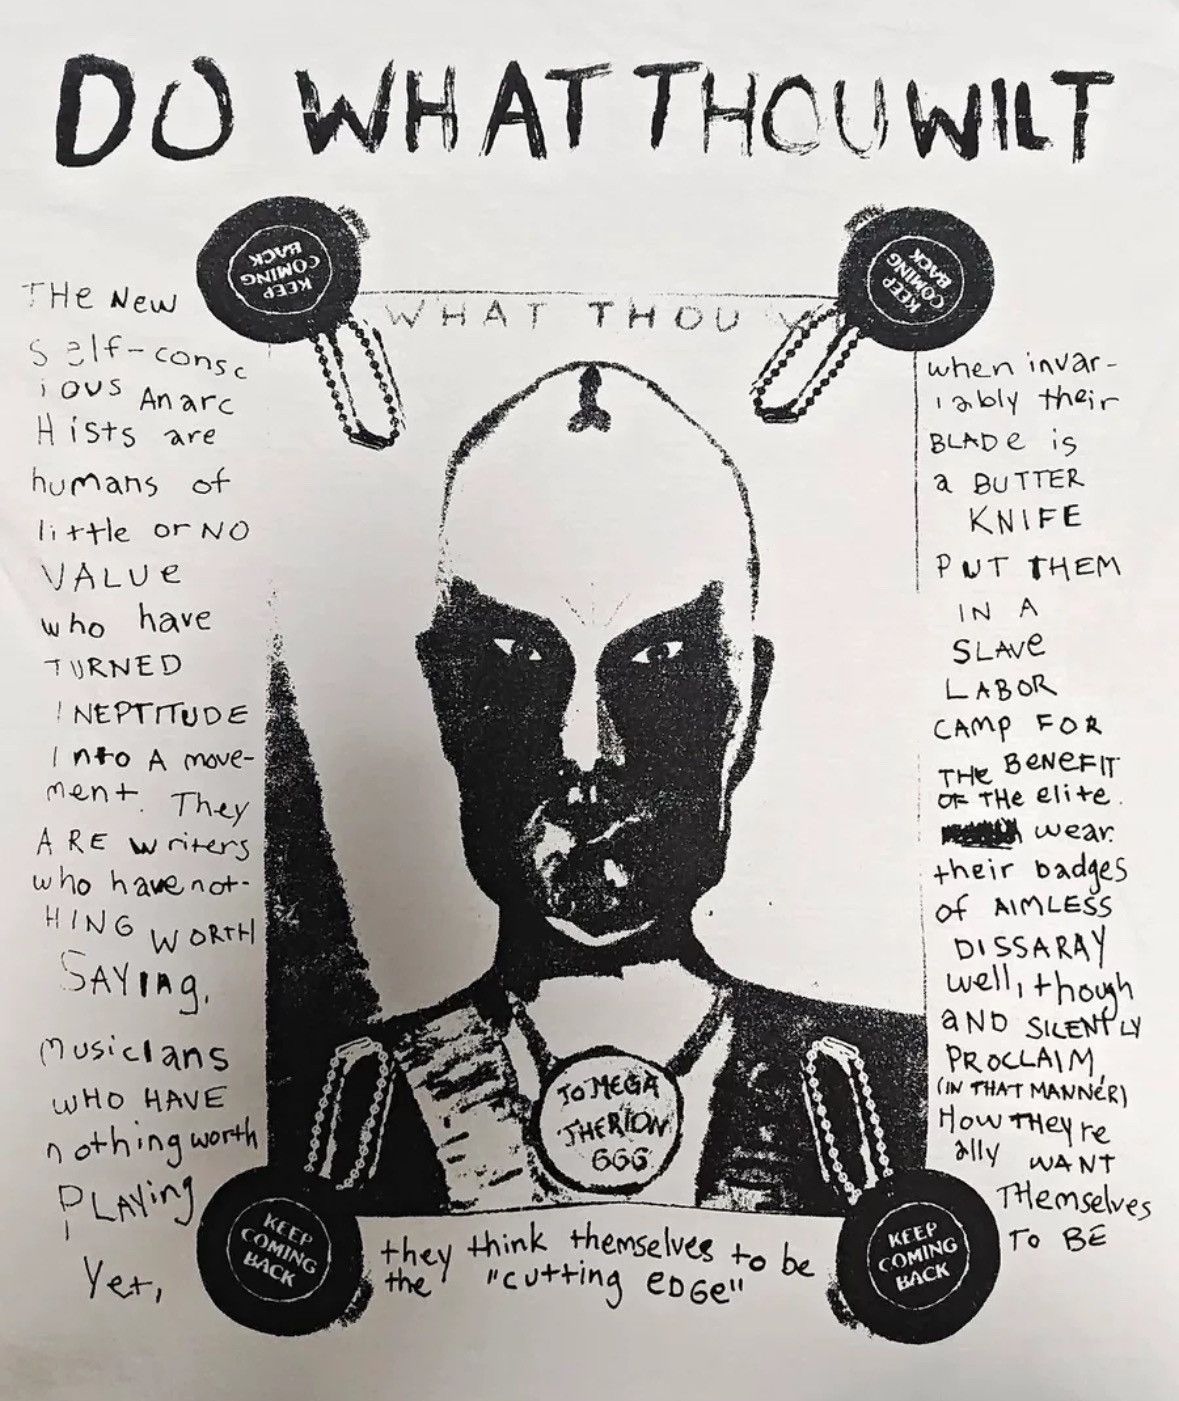 DO WHAT THOU WILT
KEEP
COMING
BACK
KEEP
COMING
BACK
WHAT THOU
THE NEW
Self-consc
ious Anarc
Hists are
humans of
little or NO
VALUE
who have
TURNED
INEPTITUDE
Into A move-
ment. They
ARE writers
who have not-
HING WORTH
SAYINg,
musicians
WHO HAVE
nothing worth
PLAYing
Yet,
TO MEGA
THERION
666
KEEP
COMING
BACK
they think themselves to be
the "cutting EDGe"
KEEP
COMING
BACK
when invar-
iably their
BLADe is
a BUTTER
KNIFE
PUT THEM
IN A
SLAVe
LABOR
CAMP FOR
THE BENEFIT
OF THe elite.
wear
their badges
of AIMLESS
DISSARAY
well, though
aND SILENTLY
PROCLAIM,
(IN THAT MANNéR)
How THey re
ally WANT
THemselves
To BE